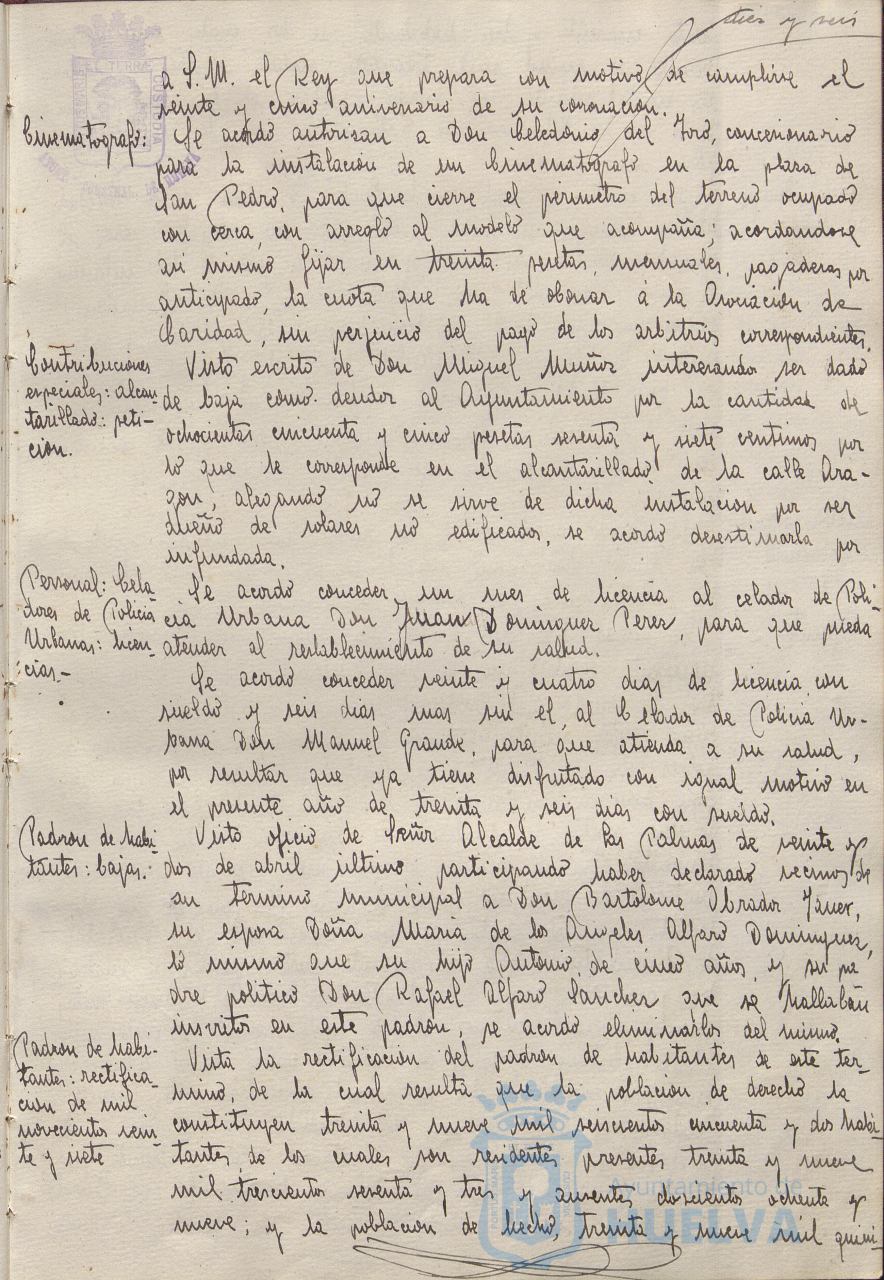 diez y seis
a S.M. el Rey que prepara con motivo de cumplirse el
veinte y cinco aniversario de su coronacion.
Cinematografo:
Se acordó autorizan a Don Celedonio del Toro, concesionario
para la instalación de un Cinematografo en la plaza de
San Pedro, para que cierre el perimetro del terreno ocupado
con cerca, con arreglo al modelo que acompaña; acordandose
asi mismo fijar en treinta pesetas, mensuales, pagaderas por
anticipado, la cuota que ha de abonar á la Asociación de
Caridad, sin perjuicio del pago de los arbitrios correspondientes.
Contribuciones
especiales: alcan
tarillado: peti-
cion.
Visto escrito de Don Miguel Muñoz interesando ser dado
de baja como deudor al Ayuntamiento por la cantidad de
ochocientas cincuenta y cinco pesetas sesenta y siete centimos por
lo que le corresponde en el alcantarillado de la calle Ara-
gon, alegando no se sirve de dicha instalacion por ser
dueño de solares no edificados, se acordó desestimarla por
infundada.
Personal: Cela-
dores de Policia
Urbanas: licen-
cias.-
Se acordó conceder un mes de licencia al celador de Poli-
cia Urbana Don Juan Dominguez Perez, para que pueda
atender al restablecimiento de su salud.
Se acordó conceder veinte y cuatro dias de licencia con
sueldo y seis dias mas sin el, al Celador de Policia Ur-
bana Don Manuel Grande, para que atienda a su salud,
por resultar que ya tiene disfrutado con igual motivo en
el presente año de treinta y seis dias con sueldo.
Padron de habi
tantes: bajas.-
Visto oficio de Señor Alcalde de Las Palmas de veinte y
dos de abril último participando haber declarado vecinos de
su termino municipal a Don Bartolome Obrador Janer,
su esposa Doña Maria de los Angeles Alfaro Dominguez,
lo mismo que su hijo Antonio, de cinco años, y su pa
dre politico Don Rafael Alfaro Sanchez que se hallaban
inscritos en este padron, se acordó eliminarlos del mismo.
Padron de habi-
tantes: rectifica-
cion de mil
novecientos vein
te y siete
Vista la rectificación del padron de habitantes de este ter-
mino, de la cual resulta que la poblacion de derecho la
constituyen treinta y nueve mil seiscientos cincuenta y dos habi-
tantes, de los cuales son residentes presentes treinta y nueve
mil trescientos sesenta y tres y ausentes doscientos ochenta y
nueve; y la poblacion de hecho, treinta y nueve mil quini-
Ayuntamiento de
HUELVA